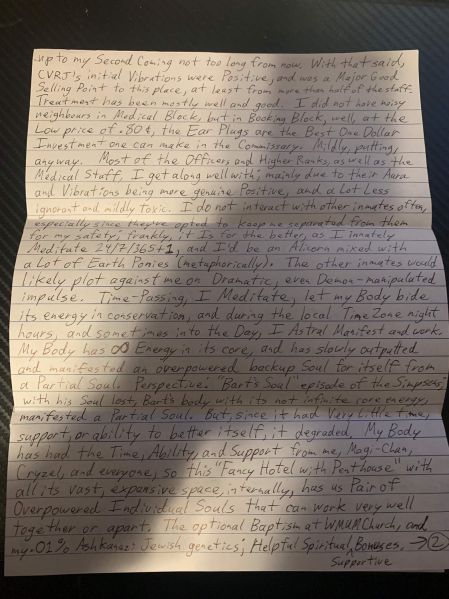 up to my Second Coming not too long from now. With that said,
CVRJ's initial Vibrations were Positive, and was a Major Good
Selling Point to this place, at least from more than half of the staff.
Treatment has been mostly well and good. I did not have noisy
neighbours in Medical Block, but in Booking Block, well, at the
Low price of .80¢, the Ear Plugs are the Best One Dollar
Investment one can make in the Commissary. Mildly, putting,
anyway. Most of the Officers, and Higher Ranks, as well as the
Medical Staff, I get along well with; mainly due to their Aura
and Vibrations being more genuine Positive, and a Lot Less
ignorant and mildly toxic. I do not interact with other inmates often,
especially since they've opted to keep me separated from them
for my safety; frankly, it Is for the better, as I innately
Meditate 24/7/365+1, and I'd be an Alicorn mixed with
a Lot of Earth Ponies (metaphorically). The other inmates would
likely plot against me on Dramatic, even Demon-manipulated
impulse. Time-Passing, I Meditate, let my Body bide
its energy in conservation, and during the local Time Zone night
hours, and sometimes into the Day, I Astral Manifest and work.
My Body has ∞ Energy in its core, and has slowly outputted
and manifested an overpowered backup Soul for itself from
a Partial Soul. Perspective. "Bart's Soul" episode of the Simpsons;
with his Soul lost, Bart's body with its not infinite core energy,
manifested a Partial Soul. But, since it had Very Little time,
support, or ability to better itself, it degraded. My Body
has had the Time, Ability, and Support from me, Magi-Chan,
Cryzel, and everyone, so this "Fancy Hotel with Penthouse" with
all its vast, expansive space, internally, has us Pair of
Overpowered Individual Souls that can work very well
together or apart. The optional Baptism at WMUMChurch, and
my .01% Ashkanazi Jewish genetics; Helpful Spiritual, Bonuses. → 2
Supportive